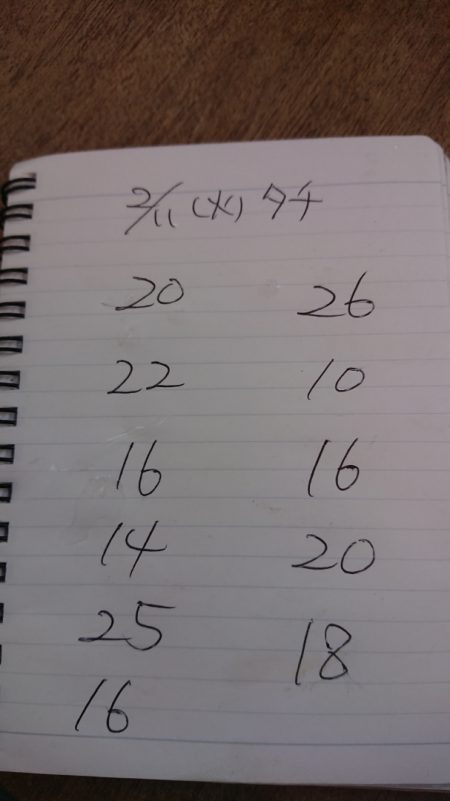 2/11(火) タチ
20 26
22 10
16 16
14 20
25 18
16